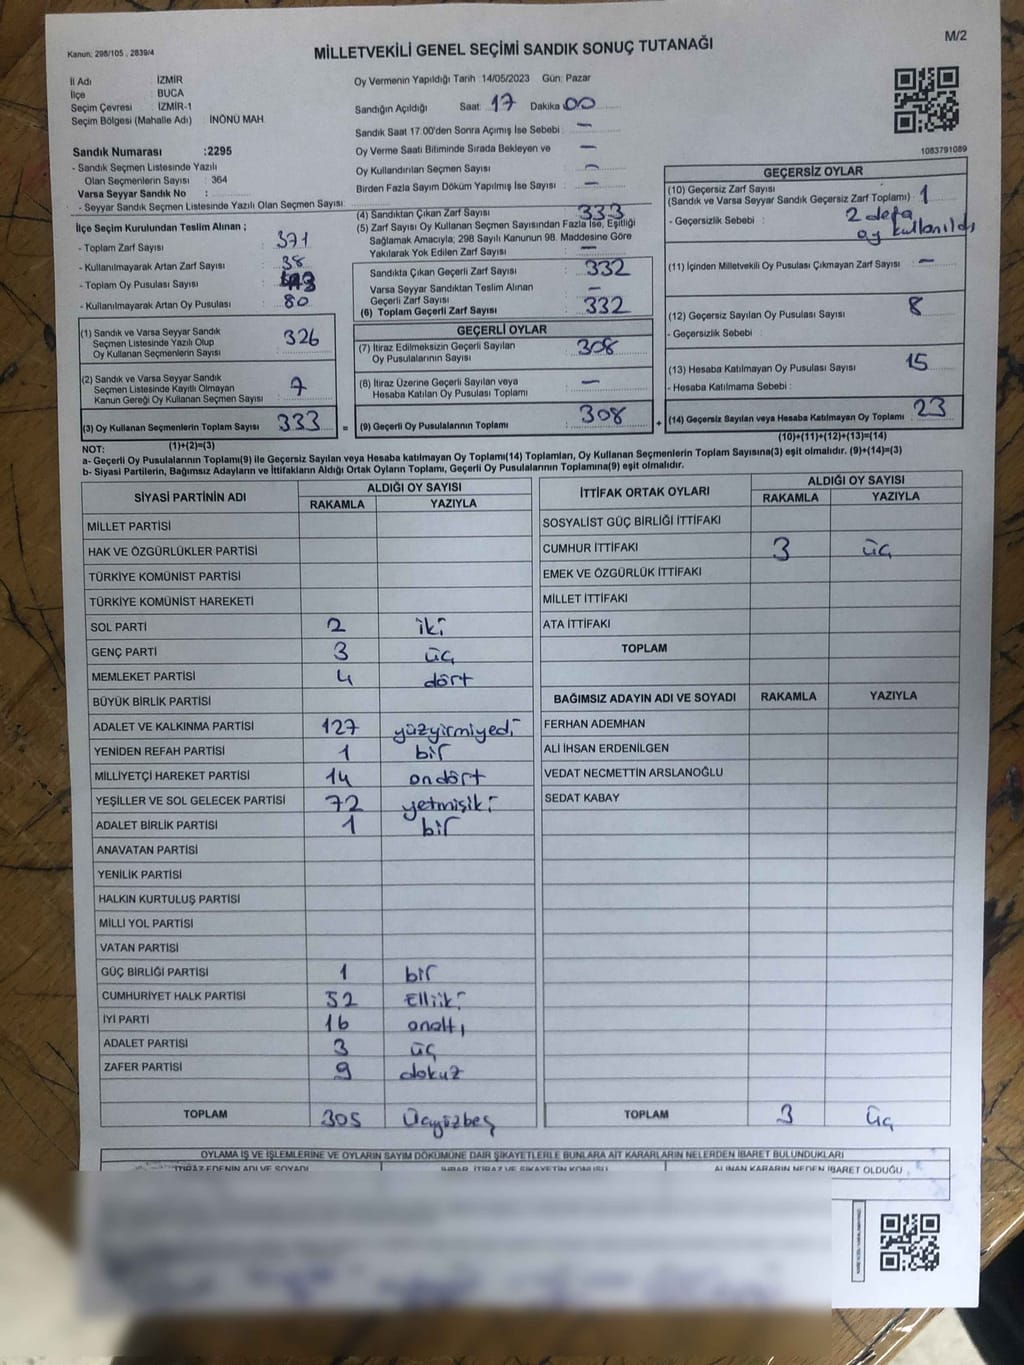 Kanun: 298/105 , 2839/4
MİLLETVEKİLİ GENEL SEÇİMİ SANDIK SONUÇ TUTANAĞI
M/2
İl Adı İZMİR
İlçe BUCA
Seçim Çevresi İZMİR-1
Seçim Bölgesi (Mahalle Adı) İNÖNÜ MAH
Sandık Numarası :2295
- Sandık Seçmen Listesinde Yazılı
Olan Seçmenlerin Sayısı : 364
Varsa Seyyar Sandık No :
- Seyyar Sandık Seçmen Listesinde Yazılı Olan Seçmen Sayısı:
Oy Vermenin Yapıldığı Tarih :14/05/2023 Gün: Pazar
Sandığın Açıldığı Saat: 17 Dakika 00
Sandık Saat 17.00'den Sonra Açımış İse Sebebi : —
Oy Verme Saati Bitiminde Sırada Bekleyen ve —
Oy Kullandırılan Seçmen Sayısı : —
Birden Fazla Sayım Döküm Yapılmış İse Sayısı : —
1083791089
İlçe Seçim Kurulundan Teslim Alınan ;
- Toplam Zarf Sayısı : 371
- Kullanılmayarak Artan Zarf Sayısı : 38
- Toplam Oy Pusulası Sayısı :
- Kullanılmayarak Artan Oy Pusulası : 80
(1) Sandık ve Varsa Seyyar Sandık
Seçmen Listesinde Yazılı Olup
Oy Kullanan Seçmenlerin Sayısı 326
(2) Sandık ve Varsa Seyyar Sandık
Seçmen Listesinde Kayıtlı Olmayan
Kanun Gereği Oy Kullanan Seçmen Sayısı 7
(3) Oy Kullanan Seçmenlerin Toplam Sayısı 333
(4) Sandıktan Çıkan Zarf Sayısı 333
(5) Zarf Sayısı Oy Kullanan Seçmen Sayısından Fazla İse, Eşitliği
Sağlamak Amacıyla; 298 Sayılı Kanunun 98. Maddesine Göre
Yakılarak Yok Edilen Zarf Sayısı : —
Sandıkta Çıkan Geçerli Zarf Sayısı : 332
Varsa Seyyar Sandıktan Teslim Alınan
Geçerli Zarf Sayısı : —
(6) Toplam Geçerli Zarf Sayısı : 332
GEÇERLİ OYLAR
(7) İtiraz Edilmeksizin Geçerli Sayılan
Oy Pusulalarının Sayısı : 308
(8) İtiraz Üzerine Geçerli Sayılan veya
Hesaba Katılan Oy Pusulası Toplamı : —
= (9) Geçerli Oy Pusulalarının Toplamı : 308
GEÇERSİZ OYLAR
(10) Geçersiz Zarf Sayısı
(Sandık ve Varsa Seyyar Sandık Geçersiz Zarf Toplamı) : 1
- Geçersizlik Sebebi : 2 defa
oy kullanıldı
(11) İçinden Milletvekili Oy Pusulası Çıkmayan Zarf Sayısı : —
(12) Geçersiz Sayılan Oy Pusulası Sayısı : 8
- Geçersizlik Sebebi :
(13) Hesaba Katılmayan Oy Pusulası Sayısı : 15
- Hesaba Katılmama Sebebi :
+ (14) Geçersiz Sayılan veya Hesaba Katılmayan Oy Toplamı : 23
NOT: (1)+(2)=(3)
(10)+(11)+(12)+(13)=(14)
a- Geçerli Oy Pusulalarının Toplamı(9) ile Geçersiz Sayılan veya Hesaba katılmayan Oy Toplamı(14) Toplamları, Oy Kullanan Seçmenlerin Toplam Sayısına(3) eşit olmalıdır. (9)+(14)=(3)
b- Siyasi Partilerin, Bağımsız Adayların ve İttifakların Aldığı Ortak Oyların Toplamı, Geçerli Oy Pusulalarının Toplamına(9) eşit olmalıdır.
SİYASİ PARTİNİN ADI ALDIĞI OY SAYISI
RAKAMLA YAZIYLA
MİLLET PARTİSİ
HAK VE ÖZGÜRLÜKLER PARTİSİ
TÜRKİYE KOMÜNİST PARTİSİ
TÜRKİYE KOMÜNİST HAREKETİ
SOL PARTİ 2 iki
GENÇ PARTİ 3 üç
MEMLEKET PARTİSİ 4 dört
BÜYÜK BİRLİK PARTİSİ
ADALET VE KALKINMA PARTİSİ 127 yüzyirmiyedi
YENİDEN REFAH PARTİSİ 1 bir
MİLLİYETÇİ HAREKET PARTİSİ 14 ondört
YEŞİLLER VE SOL GELECEK PARTİSİ 72 yetmişiki
ADALET BİRLİK PARTİSİ 1 bir
ANAVATAN PARTİSİ
YENİLİK PARTİSİ
HALKIN KURTULUŞ PARTİSİ
MİLLİ YOL PARTİSİ
VATAN PARTİSİ
GÜÇ BİRLİĞİ PARTİSİ 1 bir
CUMHURİYET HALK PARTİSİ 52 Elliiki
İYİ PARTİ 16 onaltı
ADALET PARTİSİ 3 üç
ZAFER PARTİSİ 9 dokuz
TOPLAM 305 Üçyüzbeş
İTTİFAK ORTAK OYLARI ALDIĞI OY SAYISI
RAKAMLA YAZIYLA
SOSYALİST GÜÇ BİRLİĞİ İTTİFAKI
CUMHUR İTTİFAKI 3 üç
EMEK VE ÖZGÜRLÜK İTTİFAKI
MİLLET İTTİFAKI
ATA İTTİFAKI
TOPLAM
BAĞIMSIZ ADAYIN ADI VE SOYADI RAKAMLA YAZIYLA
FERHAN ADEMHAN
ALİ İHSAN ERDENİLGEN
VEDAT NECMETTİN ARSLANOĞLU
SEDAT KABAY
TOPLAM 3 Üç
OYLAMA İŞ VE İŞLEMLERİNE VE OYLARIN SAYIM DÖKÜMÜNE DAİR ŞİKAYETLERLE BUNLARA AİT KARARLARIN NELERDEN İBARET BULUNDUKLARI
İTİRAZ EDENİN ADI VE SOYADI İHBAR, İTİRAZ VE ŞİKAYETİN KONUSU ALINAN KARARIN NEDEN İBARET OLDUĞU